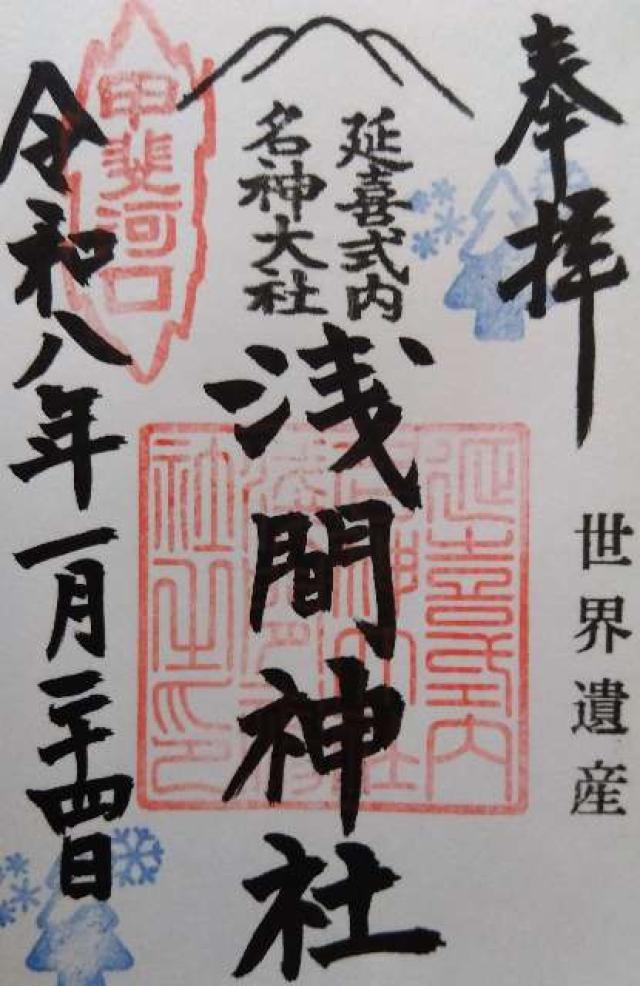 奉拝
世界遺産
延喜式内
名神大社
浅間神社
甲斐河口
令和八年一月二十四日
延喜式内
社之印